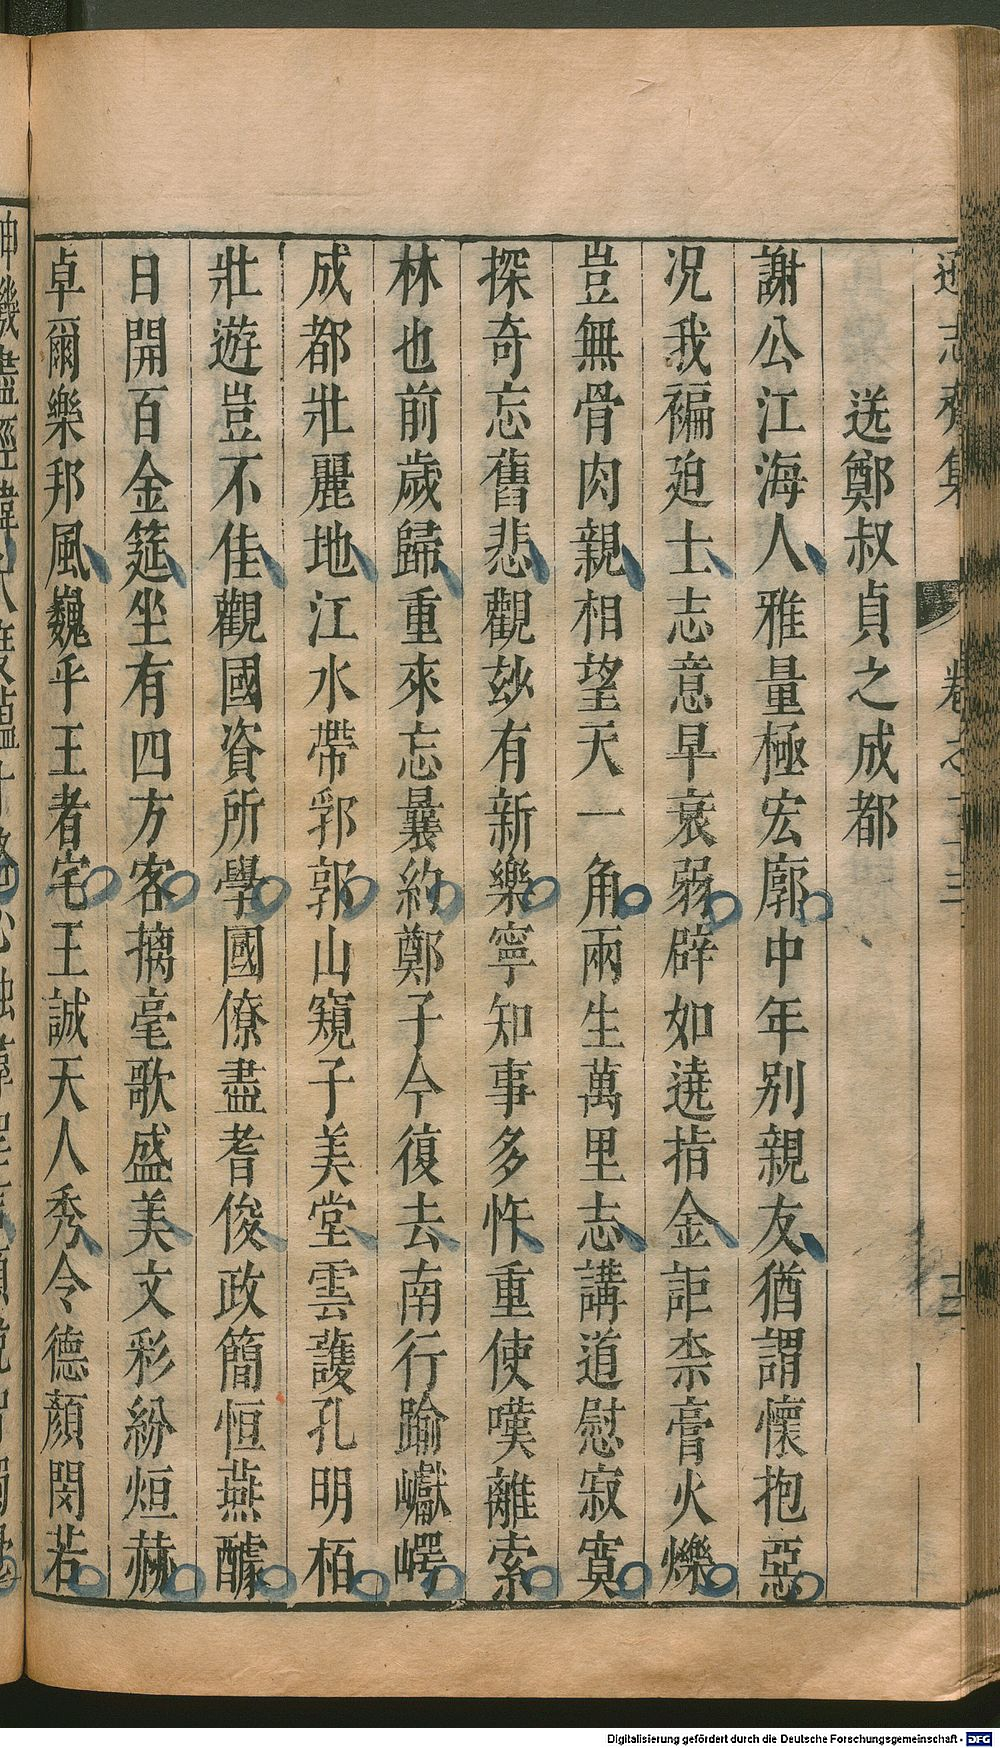 遜志齋集 卷之二十三
送鄭叔貞之成都
謝公江海人雅量極宏廓中年别親友猶謂懷抱惡
况我褊迫士志意早衰弱辟如遶指金詎柰膏火爍
豈無骨肉親相望天一角兩生萬里志講道慰寂寞
探奇忘舊悲觀玅有新樂寧知事多忤重使嘆離索
林也前歲歸重來忘曩約鄭子今復去南行踰巘崿
成都壯麗地江水帶郛郭山窺子美堂雲護孔明栢
壯遊豈不佳觀國資所學國僚盡耆俊政簡恒燕醵
日開百金筵坐有四方客摛毫歌盛美文彩紛烜赫
卓爾樂邦風巍乎王者宅王誠天人秀令德顏閔若
Digitalisierung gefördert durch die Deutsche Forschungsgemeinschaft - DFG